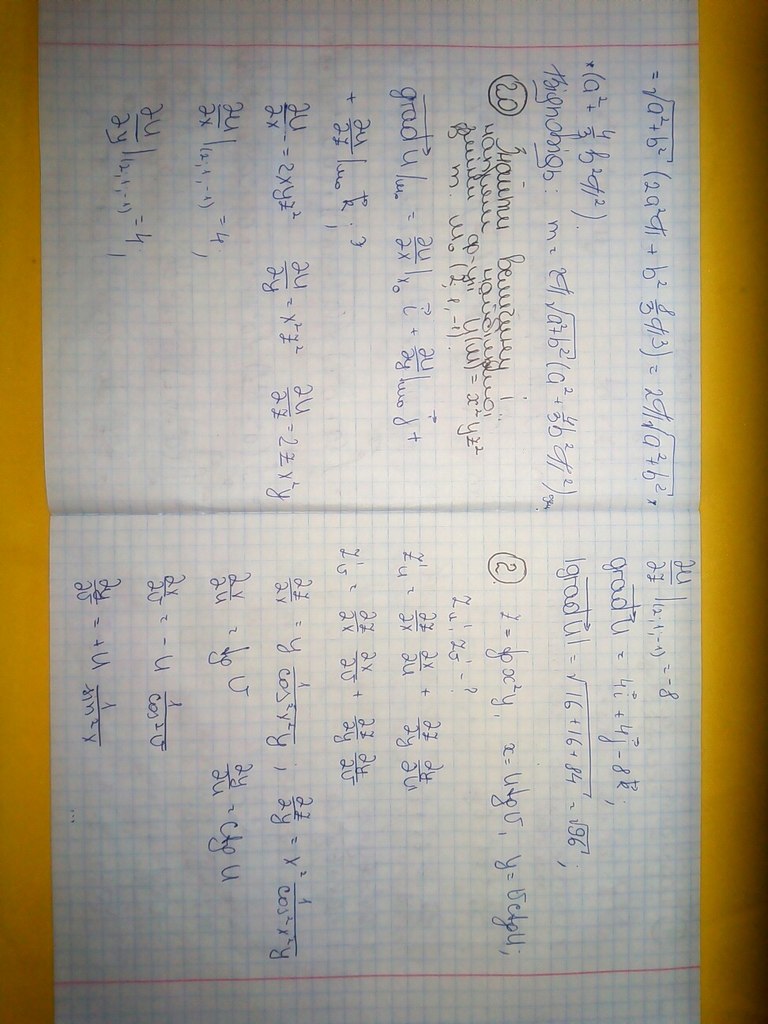 = √(a²+b²) (2a²π + b² 8/3 π³) = 2π√(a²+b²) ×
× (a² + 4/3 b²π²).
Відповідь: m = 2π√(a²+b²) (a² + 4/3 b²π²)
20 Знайти величину і
напрям найбільшої
зміни ф-ції U(M) = x²yz²
в т. M₀ (2; 1; -1).
grad U |M₀ = ∂U/∂x |x₀ i + ∂U/∂y |M₀ j +
+ ∂U/∂z |M₀ k ; 3
∂U/∂x = 2xyz² ∂U/∂y = x²z² ∂U/∂z = 2zx²y
∂U/∂x |(2,1,-1) = 4 ;
∂U/∂y |(2,1,-1) = 4 ;
∂U/∂z |(2,1,-1) = -8
grad U = 4i + 4j - 8k ;
|grad U| = √(16 + 16 + 84) = √96 ;
2. z = tg x²y, x = u tg v, y = v ctg u ;
z'u, z'v - ?
z'u = ∂z/∂x ∂x/∂u + ∂z/∂y ∂y/∂u
z'v = ∂z/∂x ∂x/∂v + ∂z/∂y ∂y/∂v
∂z/∂x = y 1/cos²x²y ; ∂z/∂y = x² 1/cos²x²y
∂x/∂u = tg v ∂y/∂u = ctg u
∂x/∂v = - u 1/cos²v
∂y/∂v = + u 1/sin²x
...